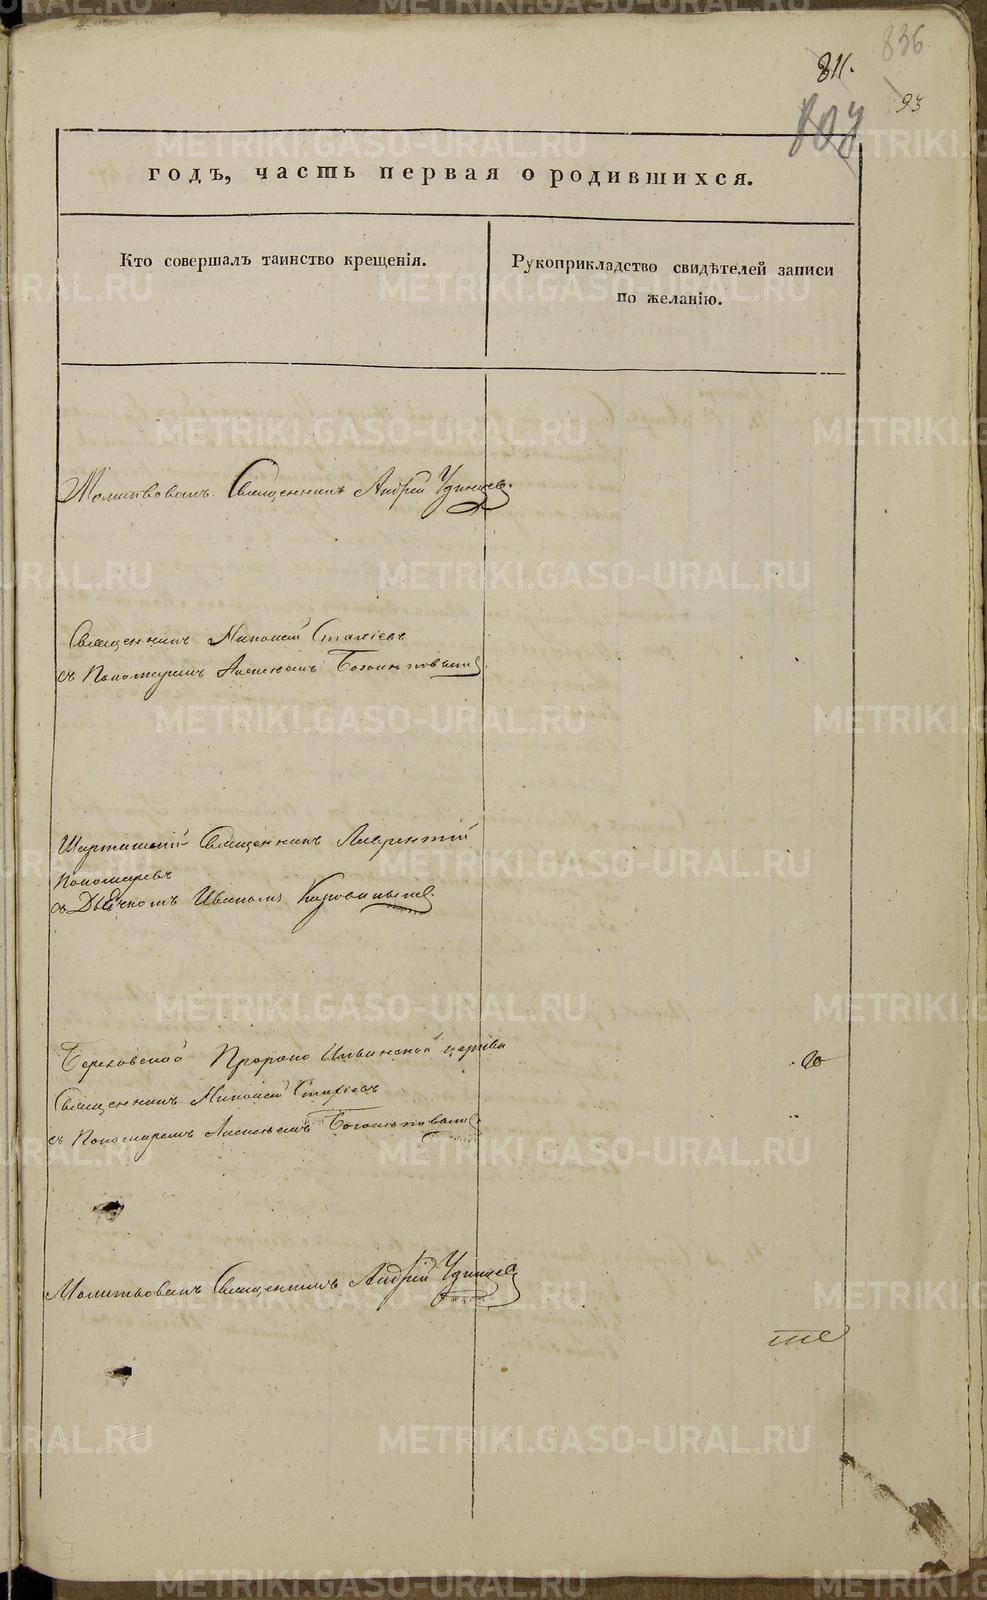 836.
811.
93
807
годъ, часть первая о родившихся.
Кто совершалъ таинство крещенія.
Рукоприкладство свидѣтелей записи
по желанію.
Молитвовалъ Священникъ Андрей Удинцев.
Священникъ Николай Стахіевъ
съ Пономаремъ Алексѣемъ Боголюбовымъ.
Шарташский Священникъ Лаврентій
Пономаревъ
съ Дьячкомъ Иваномъ
Березовской Пророко Ильинской церкви
Священникъ Николай Стахіевъ
съ Пономаремъ Алексѣемъ Боголюбовымъ
Молитвовалъ Священникъ Андрей Удинцев
METRIKI.GASO-URAL.RU